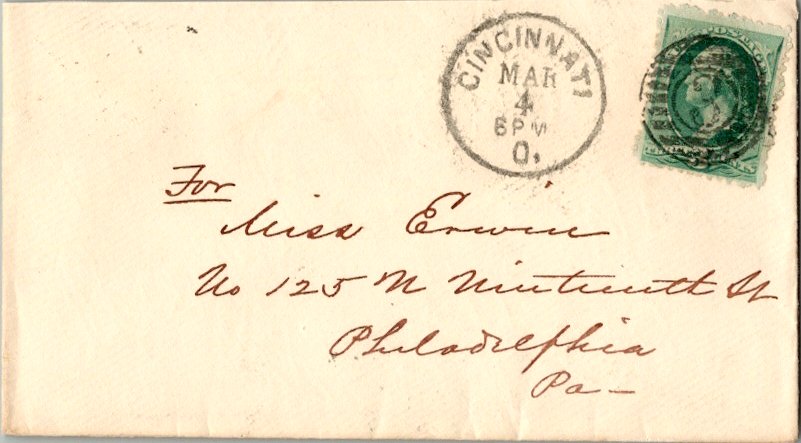 CINCINNATI
MAR
4
6PM
O.
For
Miss Erwin
No 125 N Ninteenth St
Philadelphia
Pa-